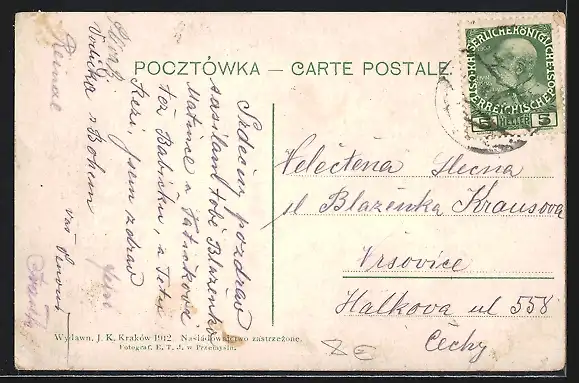 POCZTÓWKA — CARTE POSTALE
KAISERLICHEKÖNIGLICHE
ÖSTERREICHISCHE POST
5 HELLER 5
Srdečny pozdrav
zasilam tobě Blaženko
Matince a Tatíčkovi
též Babičku, a Tetu
jsem zdrav
s Bohem
Velectena Slecna
sl Blaženka Krausova
Vrsovice
Halkova ul 558
Čechy
Wydawn. J. K. Kraków 1912. Naśladownictwo zastrzeżone.
Fotograf. E. T. J. w Przemyślu.